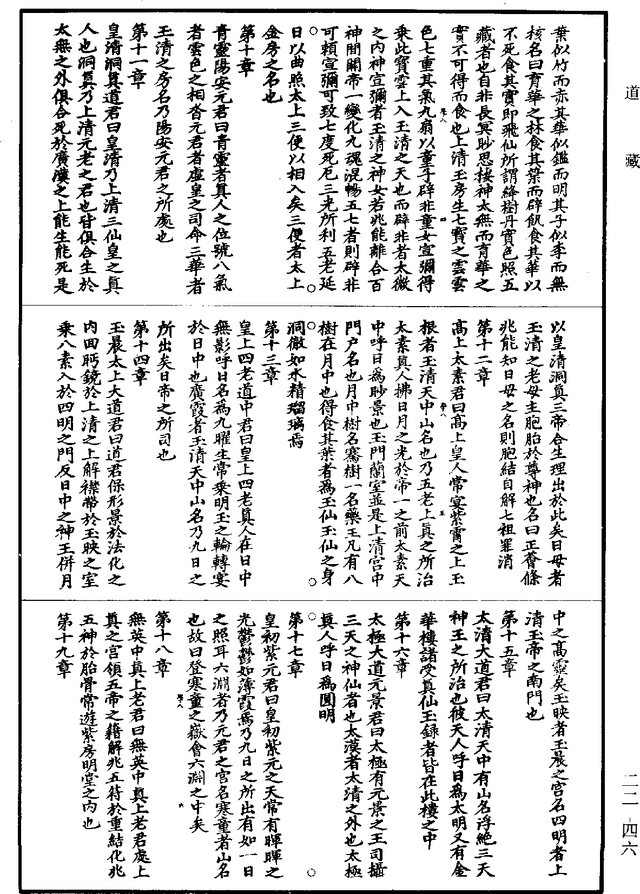 道藏
葉似竹而赤其華似鑑而明其子似李而無
核名曰育華之林食其葉而辟飢食其華以
不死食其實即飛仙所謂絳樹丹實色照五
藏者也自非長冥眇思接神太無而育華之
實不可得而食也上清玉房生七寶之雲雲
色七重其氣九扇以童子辟非童女宣彌得
乘此寶雲上入玉清之天也而辟非者太微
之內神宣彌者玉清之神女若兆能離合百
神閉關帝一變化九魂混暢五七者則辟非
可賴宣彌可致七度死厄三光所利五老延
日以曲照太上三便以相入矣三便者太上
金房之名也
第十章
青靈陽安元君曰青靈者真人之位號八氣
者雲色之相沓元君者虛皇之司命三華者
玉清之房名乃陽安元君之所處也
第十一章
皇清洞真道君曰皇清乃上清三仙皇之真
人也洞真乃上清元老之君也皆俱合生於
太無之外俱合死於廣漠之上能生能死是
以皇清洞真三帝合生理出於此矣日母者
玉清之老母主胞胎於尊神也名曰正薈條
兆能知日母之名則胞結自解七祖罪消
第十二章
高上太素君曰高上皇人常宴紫霄之上玉
根者玉清天中山名也乃五老上真之所治
太素真人拂日月之光於帝一之前太素天
中呼日為眇景也玉門蘭室並是上清宮中
門戶名也月中樹名騫樹一名藥王凡有八
樹在月中也得食其葉者為玉仙玉仙之身
洞徹如水精瑠璃焉
第十三章
皇上四老道中君曰皇上四老真人在日中
無影呼日名為九曜生常乘明玉之輪轉宴
於日中也廣霞者玉清天中山名乃九日之
所出矣日帝之所司也
第十四章
玉晨太上大道君曰道君保形景於法化之
內迴眄鏡於上清之上解襟帶於玉映之室
乘八素入於四明之門反日中之神王併月
中之高靈矣玉映者玉晨之宮名四明者上
清玉帝之南門也
第十五章
太清大道君曰太清天中有山名浮絕三天
神王之所治也彼天人呼日為太明又有金
華樓諸受真仙玉錄者皆在此樓之中
第十六章
太極大道元景君曰太極有元景之王司攝
三天之神仙者也太漠者太清之外也太極
真人呼日為圓明
第十七章
皇初紫元君曰皇初紫元之天常有暉暉之
光鬱鬱如薄霞焉乃九日之所出有如一日
之照耳六淵者乃元君之宮名寒童者山名
也故曰登寒童之嶽會六淵之中矣
第十八章
無英中真上老君曰無英中真上老君處上
真之宮領五帝之籍解兆五符於重結化兆
五神於胎骨常遊紫房明堂之內也
第十九章
二二-四六